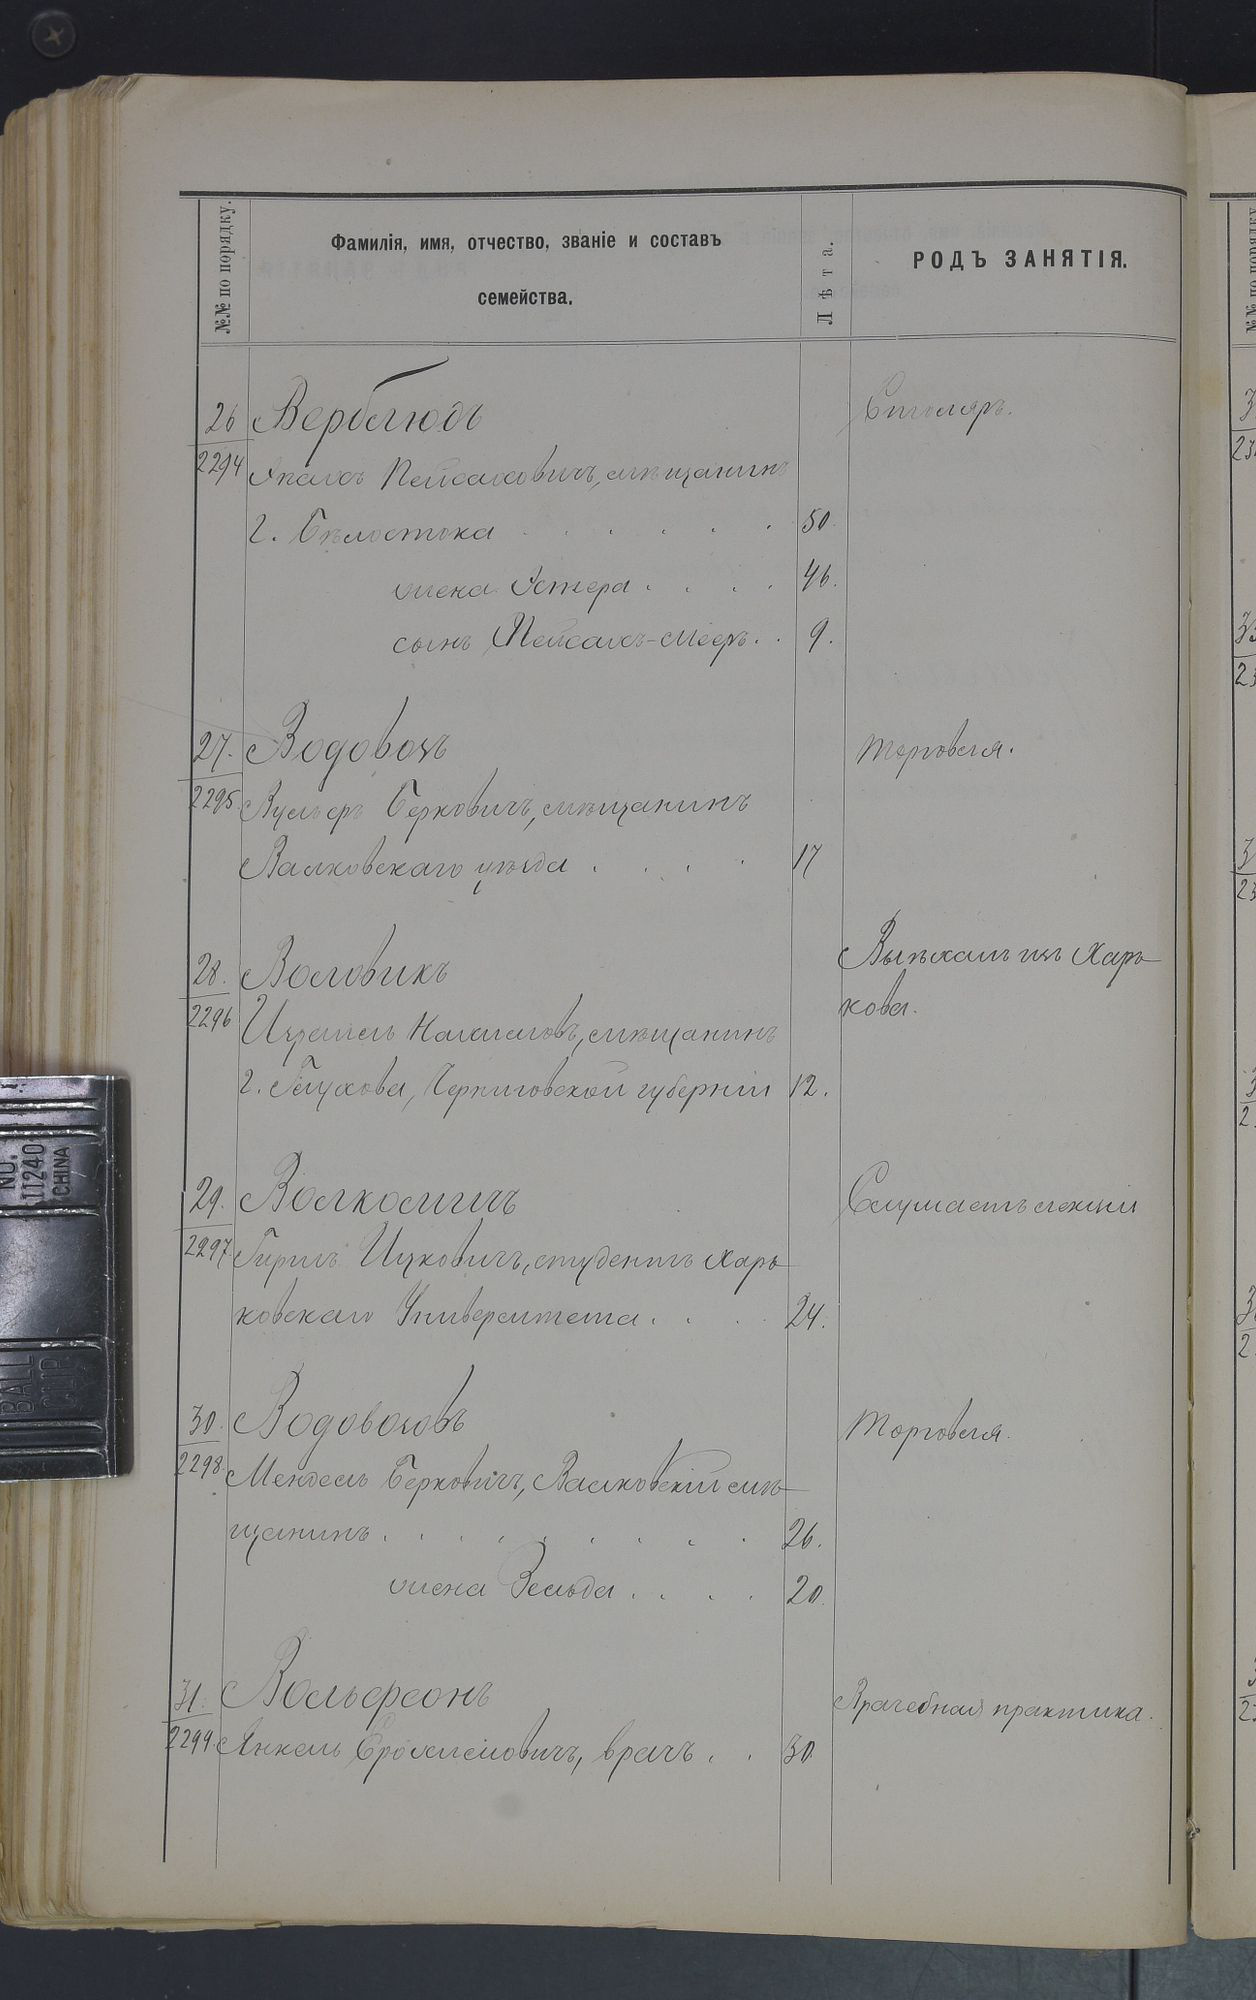 №№ по порядку.
Фамилія, имя, отчество, званіе и составъ
семейства.
Лѣта.
РОДЪ ЗАНЯТІЯ.
26 Верблюдъ Столяръ.
2294 Пейсаховичъ, мѣщанинъ
г. Бѣлостока . . . . . . 50.
жена Эстера . . . . 46.
сынъ Пейсахъ-Мееръ. . 9.
27. Водовозъ Торговля.
2295. Берковичъ, мѣщанинъ
Валковскаго уѣзда . . . . 17
28. Воловикъ Выѣхалъ изъ Харь-
2296 Израиль мѣщанинъ кова.
г. Глухова, Черниговской губерніи 12.
29. Слушаетъ лекціи
2297. Гиршъ Ицковичъ, студентъ Харь-
ковскаго Университета . . . 24.
30. Водовозовъ Торговля.
2298. Мендель Берковичъ, Валковскій мѣ-
щанинъ . . . . . . . . 26.
жена Зельда . . . . 20.
31. Вольфсонъ Врачебная практика.
2299. Янкель врачъ . . 30
NO.
11240
CHINA
BALL
CLIP